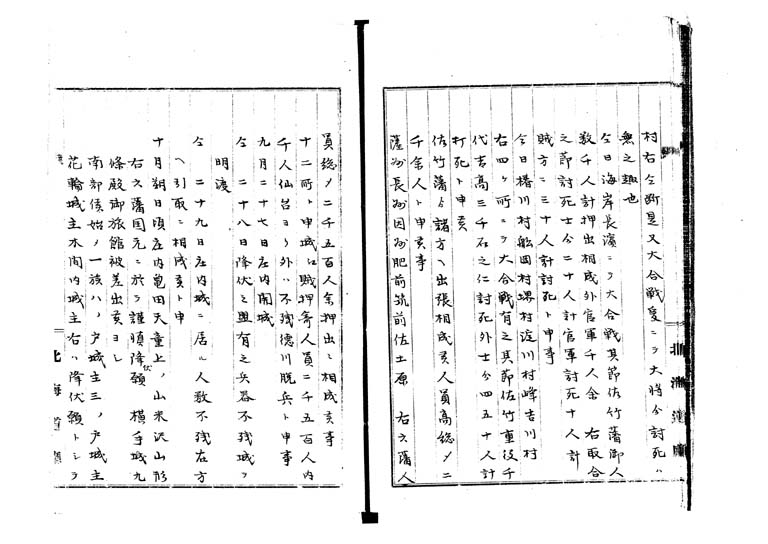 村右仝断是又大合戦爰ニヲ大将分討死ハ
無之趣也
仝日海岸長濱ニヲ大合戦其節佐竹藩御人
数千人計押出相成外官軍千人余 右取合
之節討死士分二十人計官軍討死十人計
賊方ニ三十人計討死ト申事
仝日椿川村舩岡村堺村淀川村峰吉川村
右四ヶ所ニヲ大合戦有之其節佐竹重役千
代吉高三千石之仁討死外士分四五十人計
打死ト申亥
佐竹藩ゟ諸方ヘ出張相成亥人員高総〆二
千余人ト申亥事
薩州長州因州肥前筑前佐土原 右六藩人
北海道廳
員総〆二千五百人余押出シ相成亥事
十二所ト申城江賊押寄人員二千五百人内
千人仙台ヨリ外ハ不残徳川脱兵ト申事
九月二十七日庄内開城
仝 二十八日降伏ト興有之兵器不残城ヲ
明渡
仝 二十九日庄内城ニ居ル人数不残在方
ヘ引取ニ相成亥ト申
十月朔日頃庄内亀田天童上ノ山米沢山形
右六藩国元ニ於ヲ謹慎降伏願 横手城九
條殿御旅館被差出亥ヨシ
南部侯始ノ一族八ノ戸城主三ノ戸城主
花輪城主水間内城主右ハ降伏願トシヲ
北海道廳